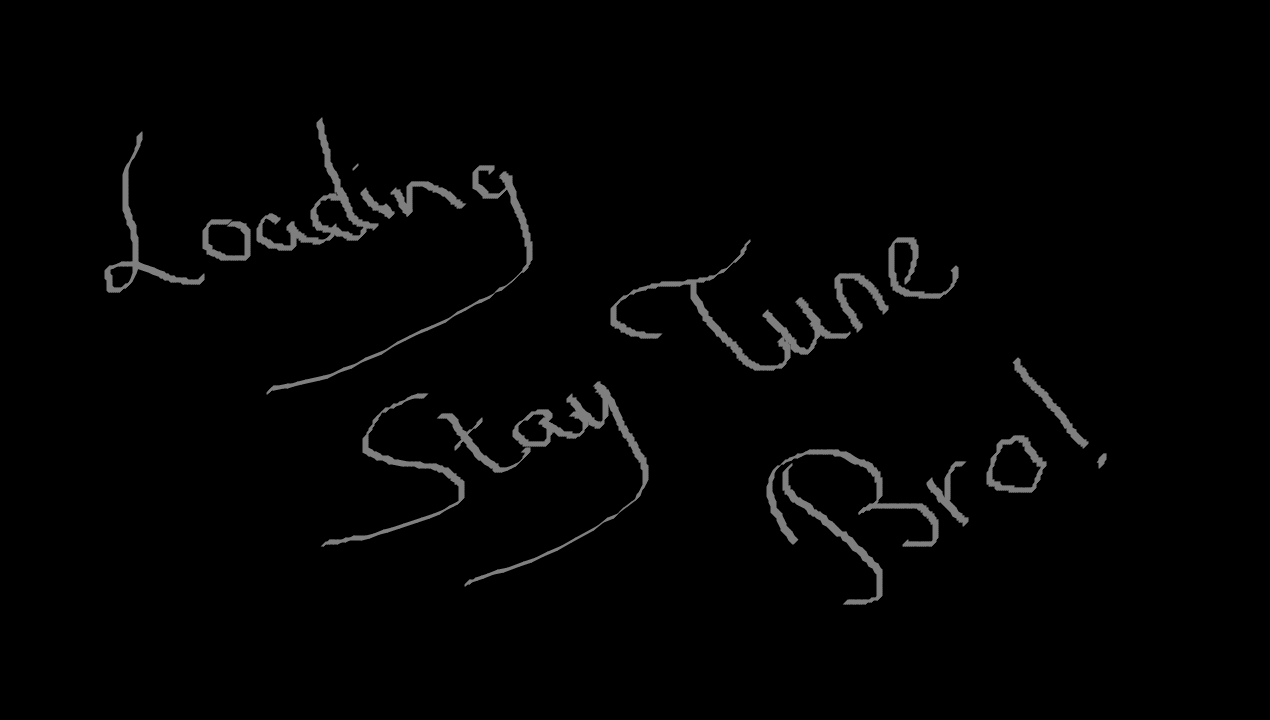 Loading
Stay Tune
Bro!